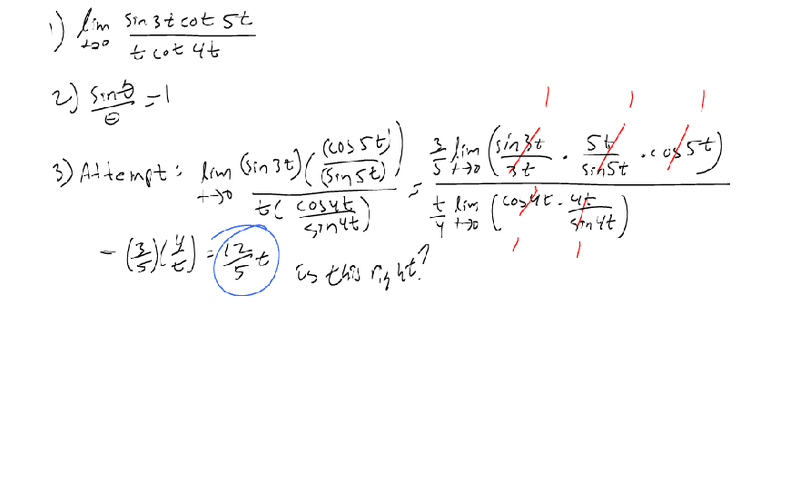 1) lim t→0 sin 3t cot 5t / t cot 4t
2) sin θ / θ = 1
3) Attempt: lim t→0 (sin 3t) ( (cos 5t) / (sin 5t) ) / t ( cos 4t / sin 4t ) = 3/5 lim t→0 ( sin 3t / 3t · 5t / sin 5t · cos 5t ) / t/4 lim t→0 ( cos 4t · 4t / sin 4t ) 1 1 1 1 1
- (3/5) (4/t) = 12/5 t is this right?